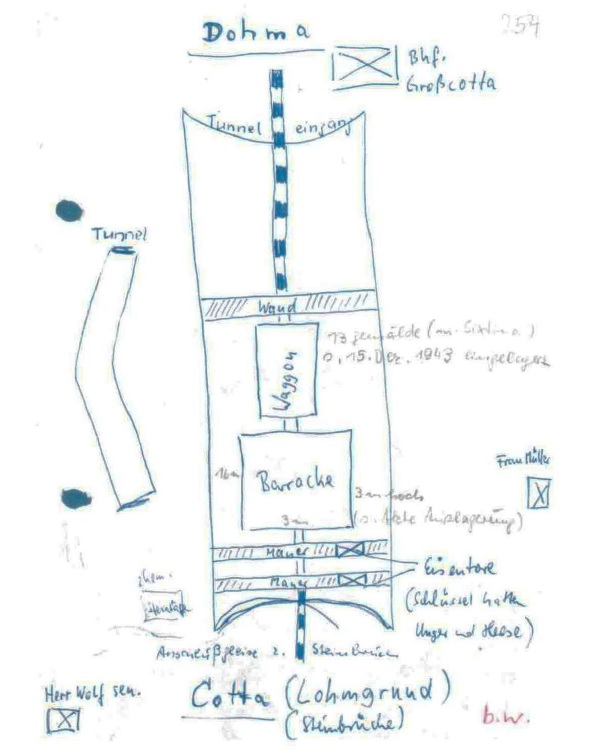 254
Dohma
Bhf.
Großcotta
Tunnel eingang
Tunnel
Wand
13 Gemälde (m. Sixtina)
15. Dez. 1943 eingelagert
Waggon
Frau Müller
16m
Baracke
3m hoch
3m
(s. Akte Auslagerung)
Mauer
Eisentore
ehem.
Mauer
(Schlüssel hatten
Unger und Heese)
Anschlußgleise z. Steinbruch
Herr Wolf sen.
Cotta (Lohmgrund)
(Steinbrüche)
b.w.